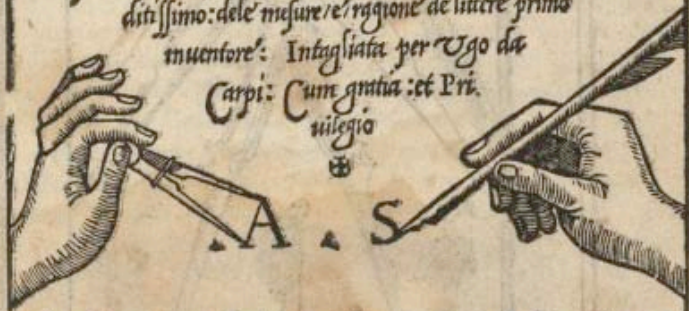 ditissimo: dele mesure / e / ragione de littere primo
inuentore: Intagliata per Vgo da
Carpi: Cum gratia: et Pri.
uilegio
.A . S